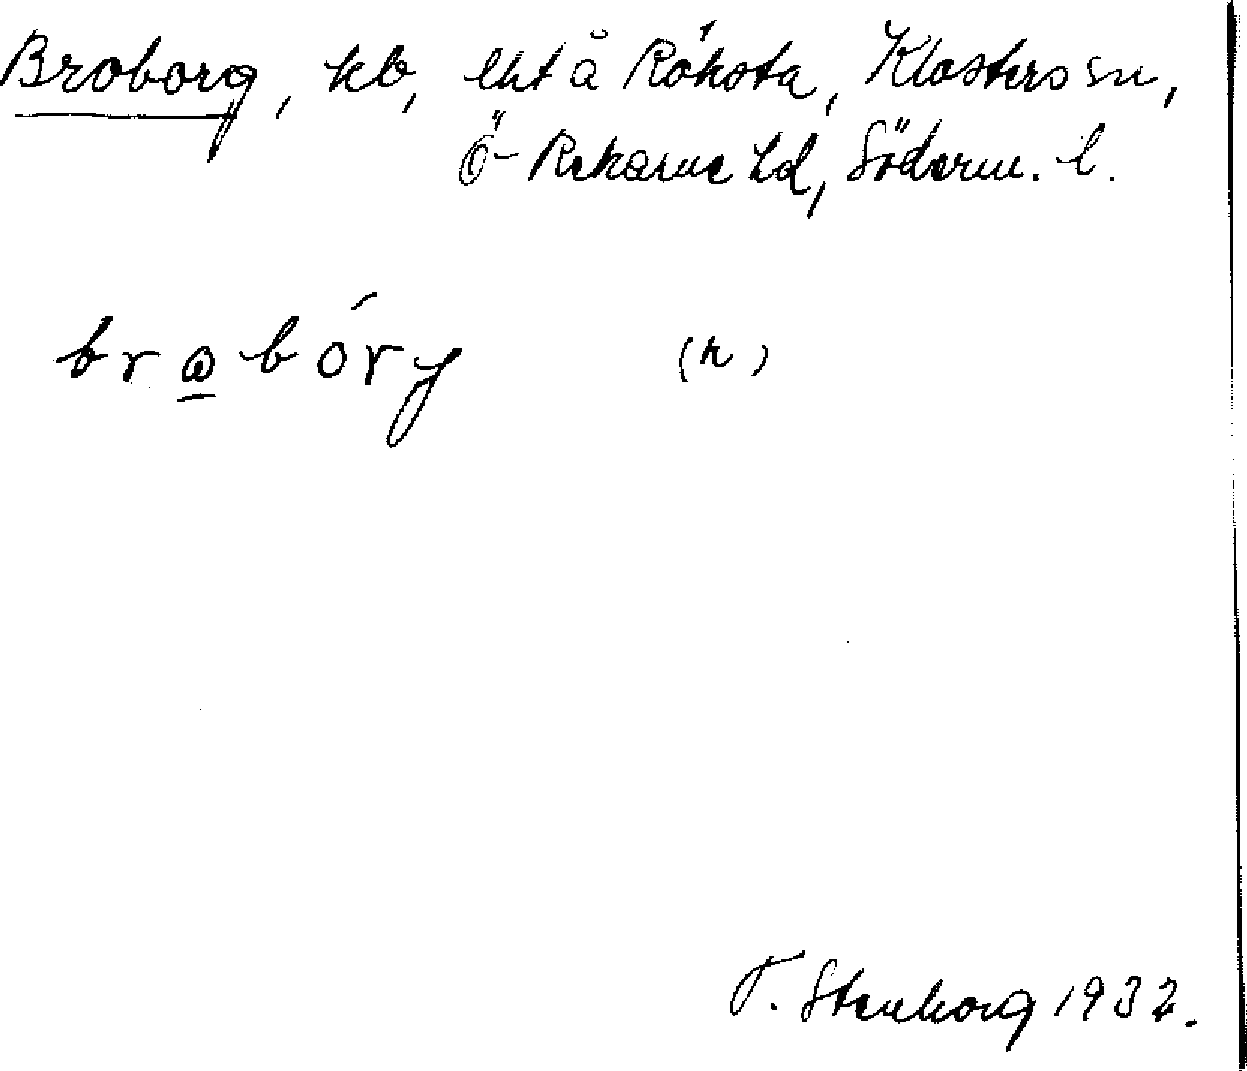 Broborg, kb, lht å Röksta, Klosters sn,
Ö-Rekarne hd, Söderm. l.
brωbórj (k)
T. Stenborg 1932.